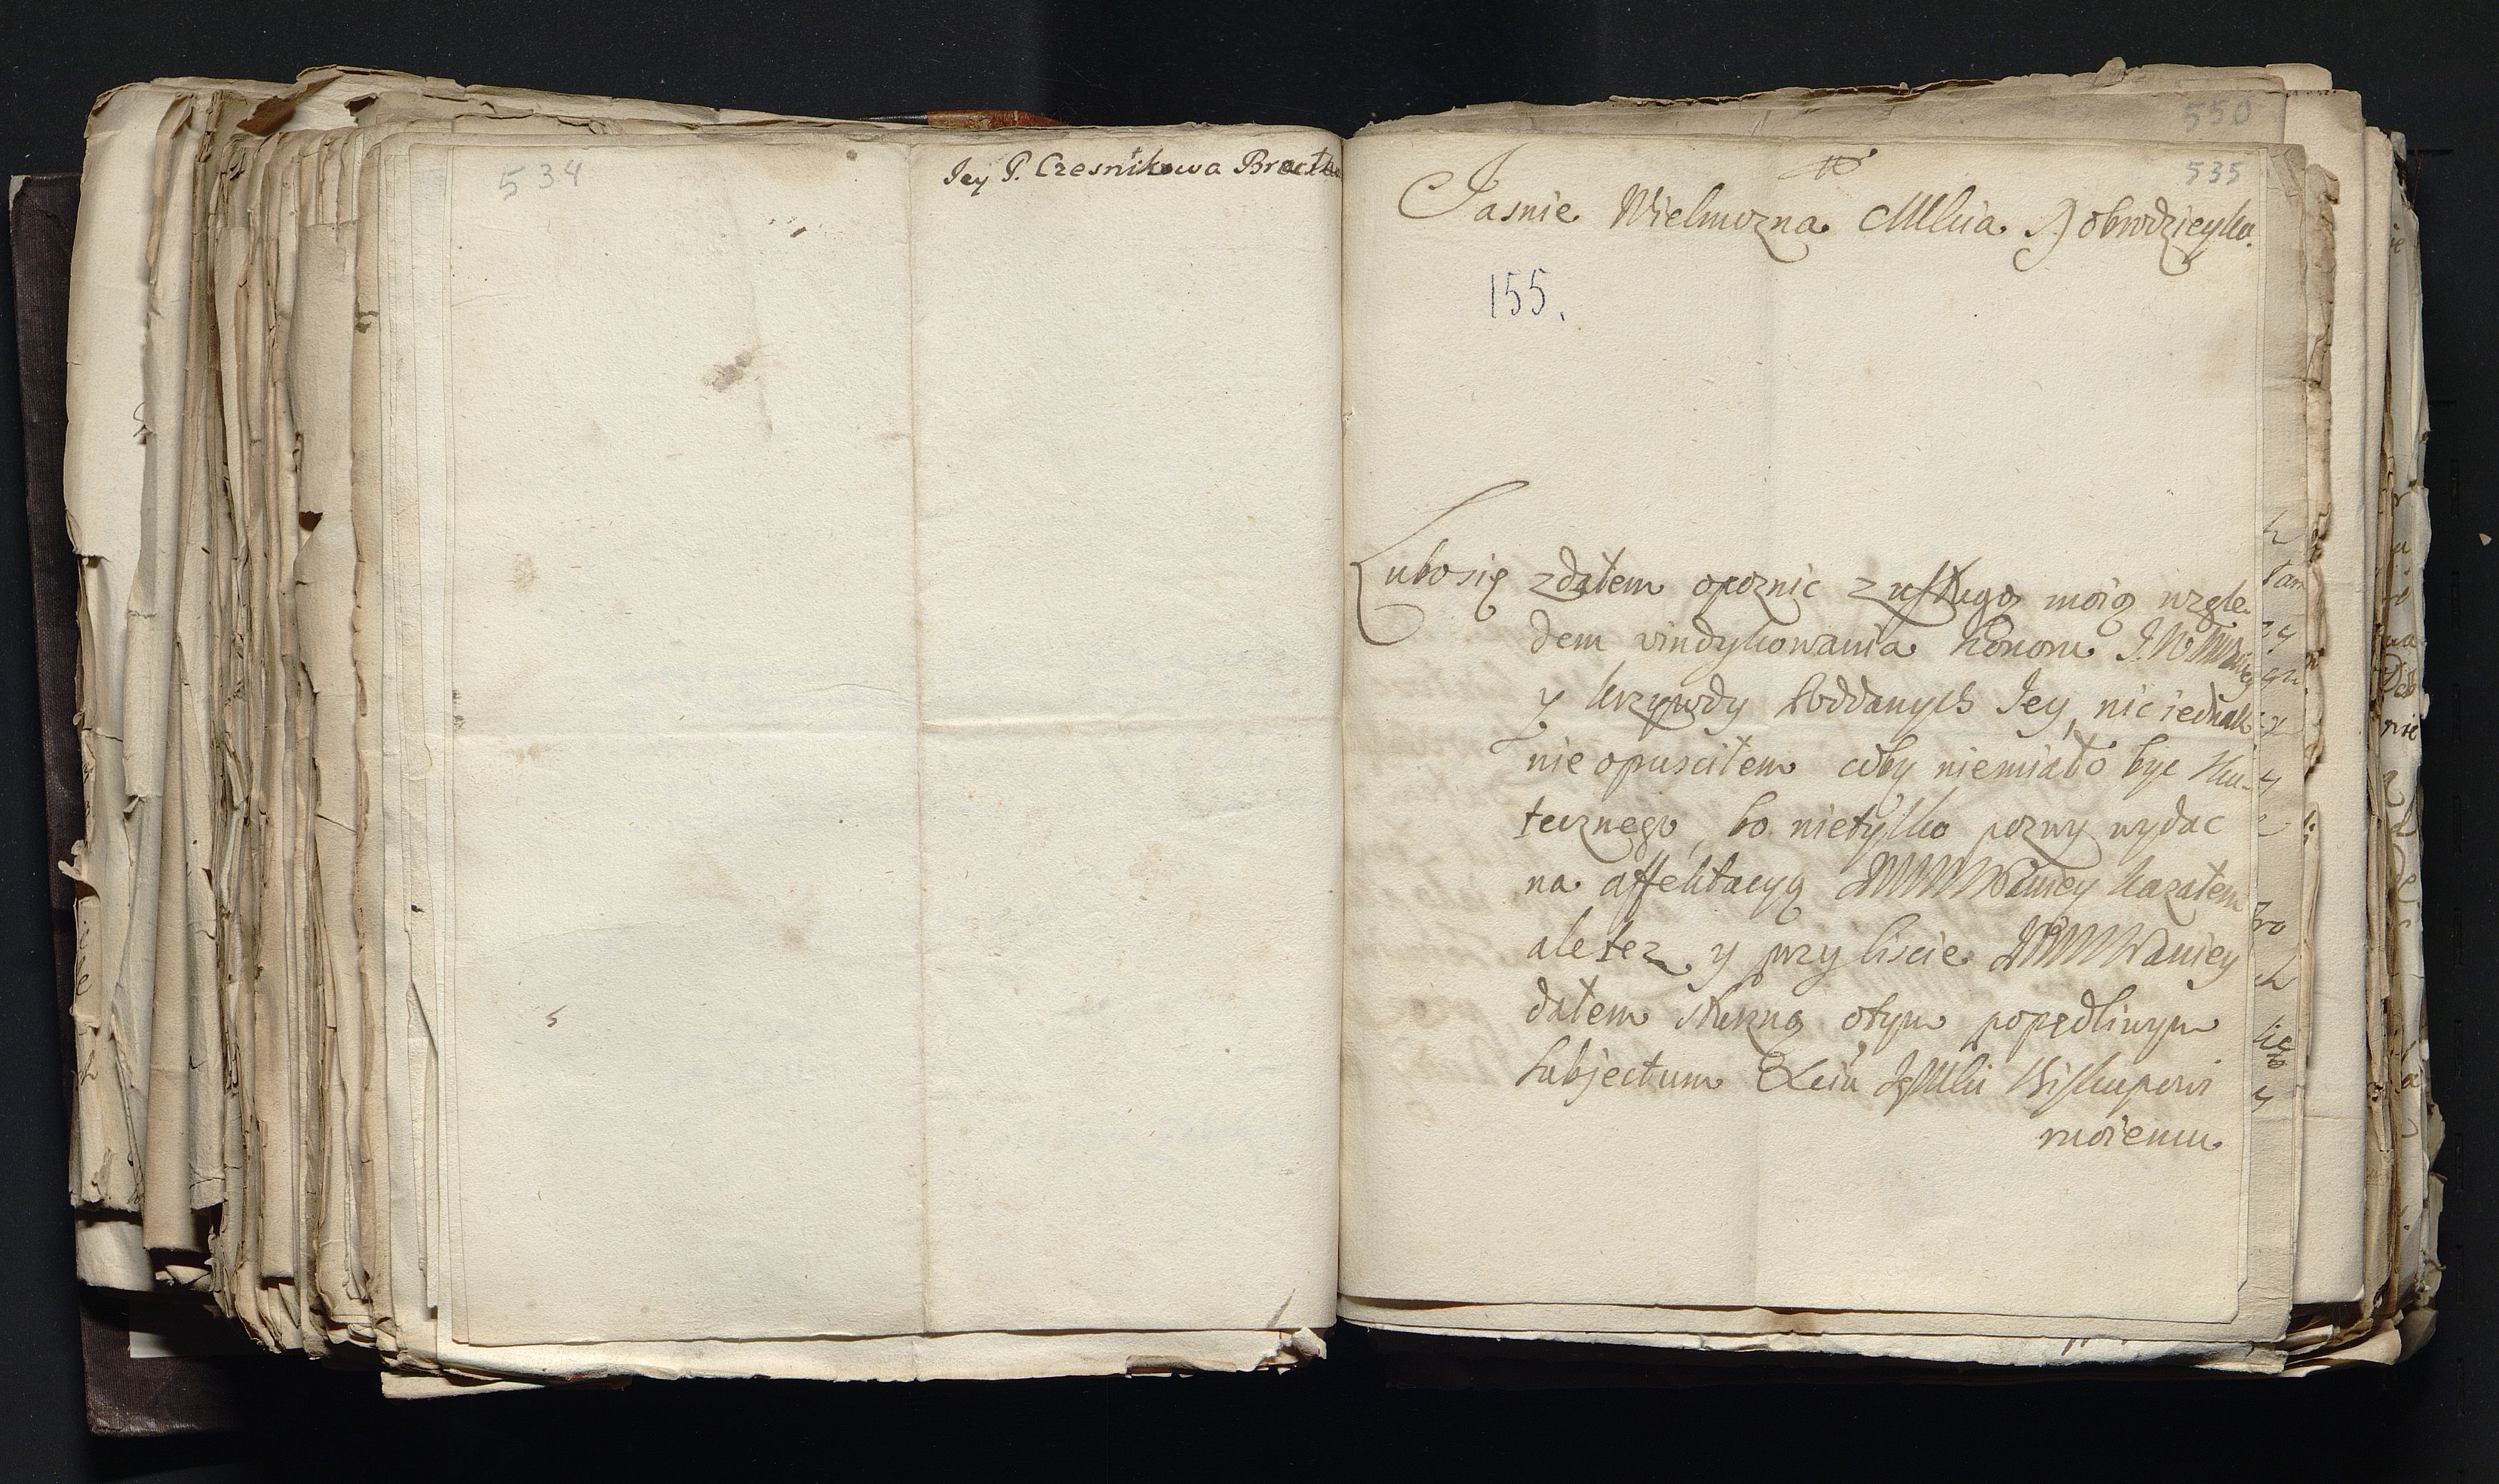 534
Jey P. Czesnikowa Bracł
550
535
Jasnie Wielmozna Mścia Dobrodzieyko.
155.
Lubo się zdałem opoznic z usługą moią wzglę-
dem vindykowania honoru J.W.
y krzywdy Poddanych Jey, nic iednak
nie opuscilem coby niemiało byc sku-
tecznego, bo nietylko pozwy wydac
na affektacyą kazałem
ale tez y przy liscie
dałem skargą otym popędliwym
Subjectum Xciu JgMści Biskupowi
moiemu